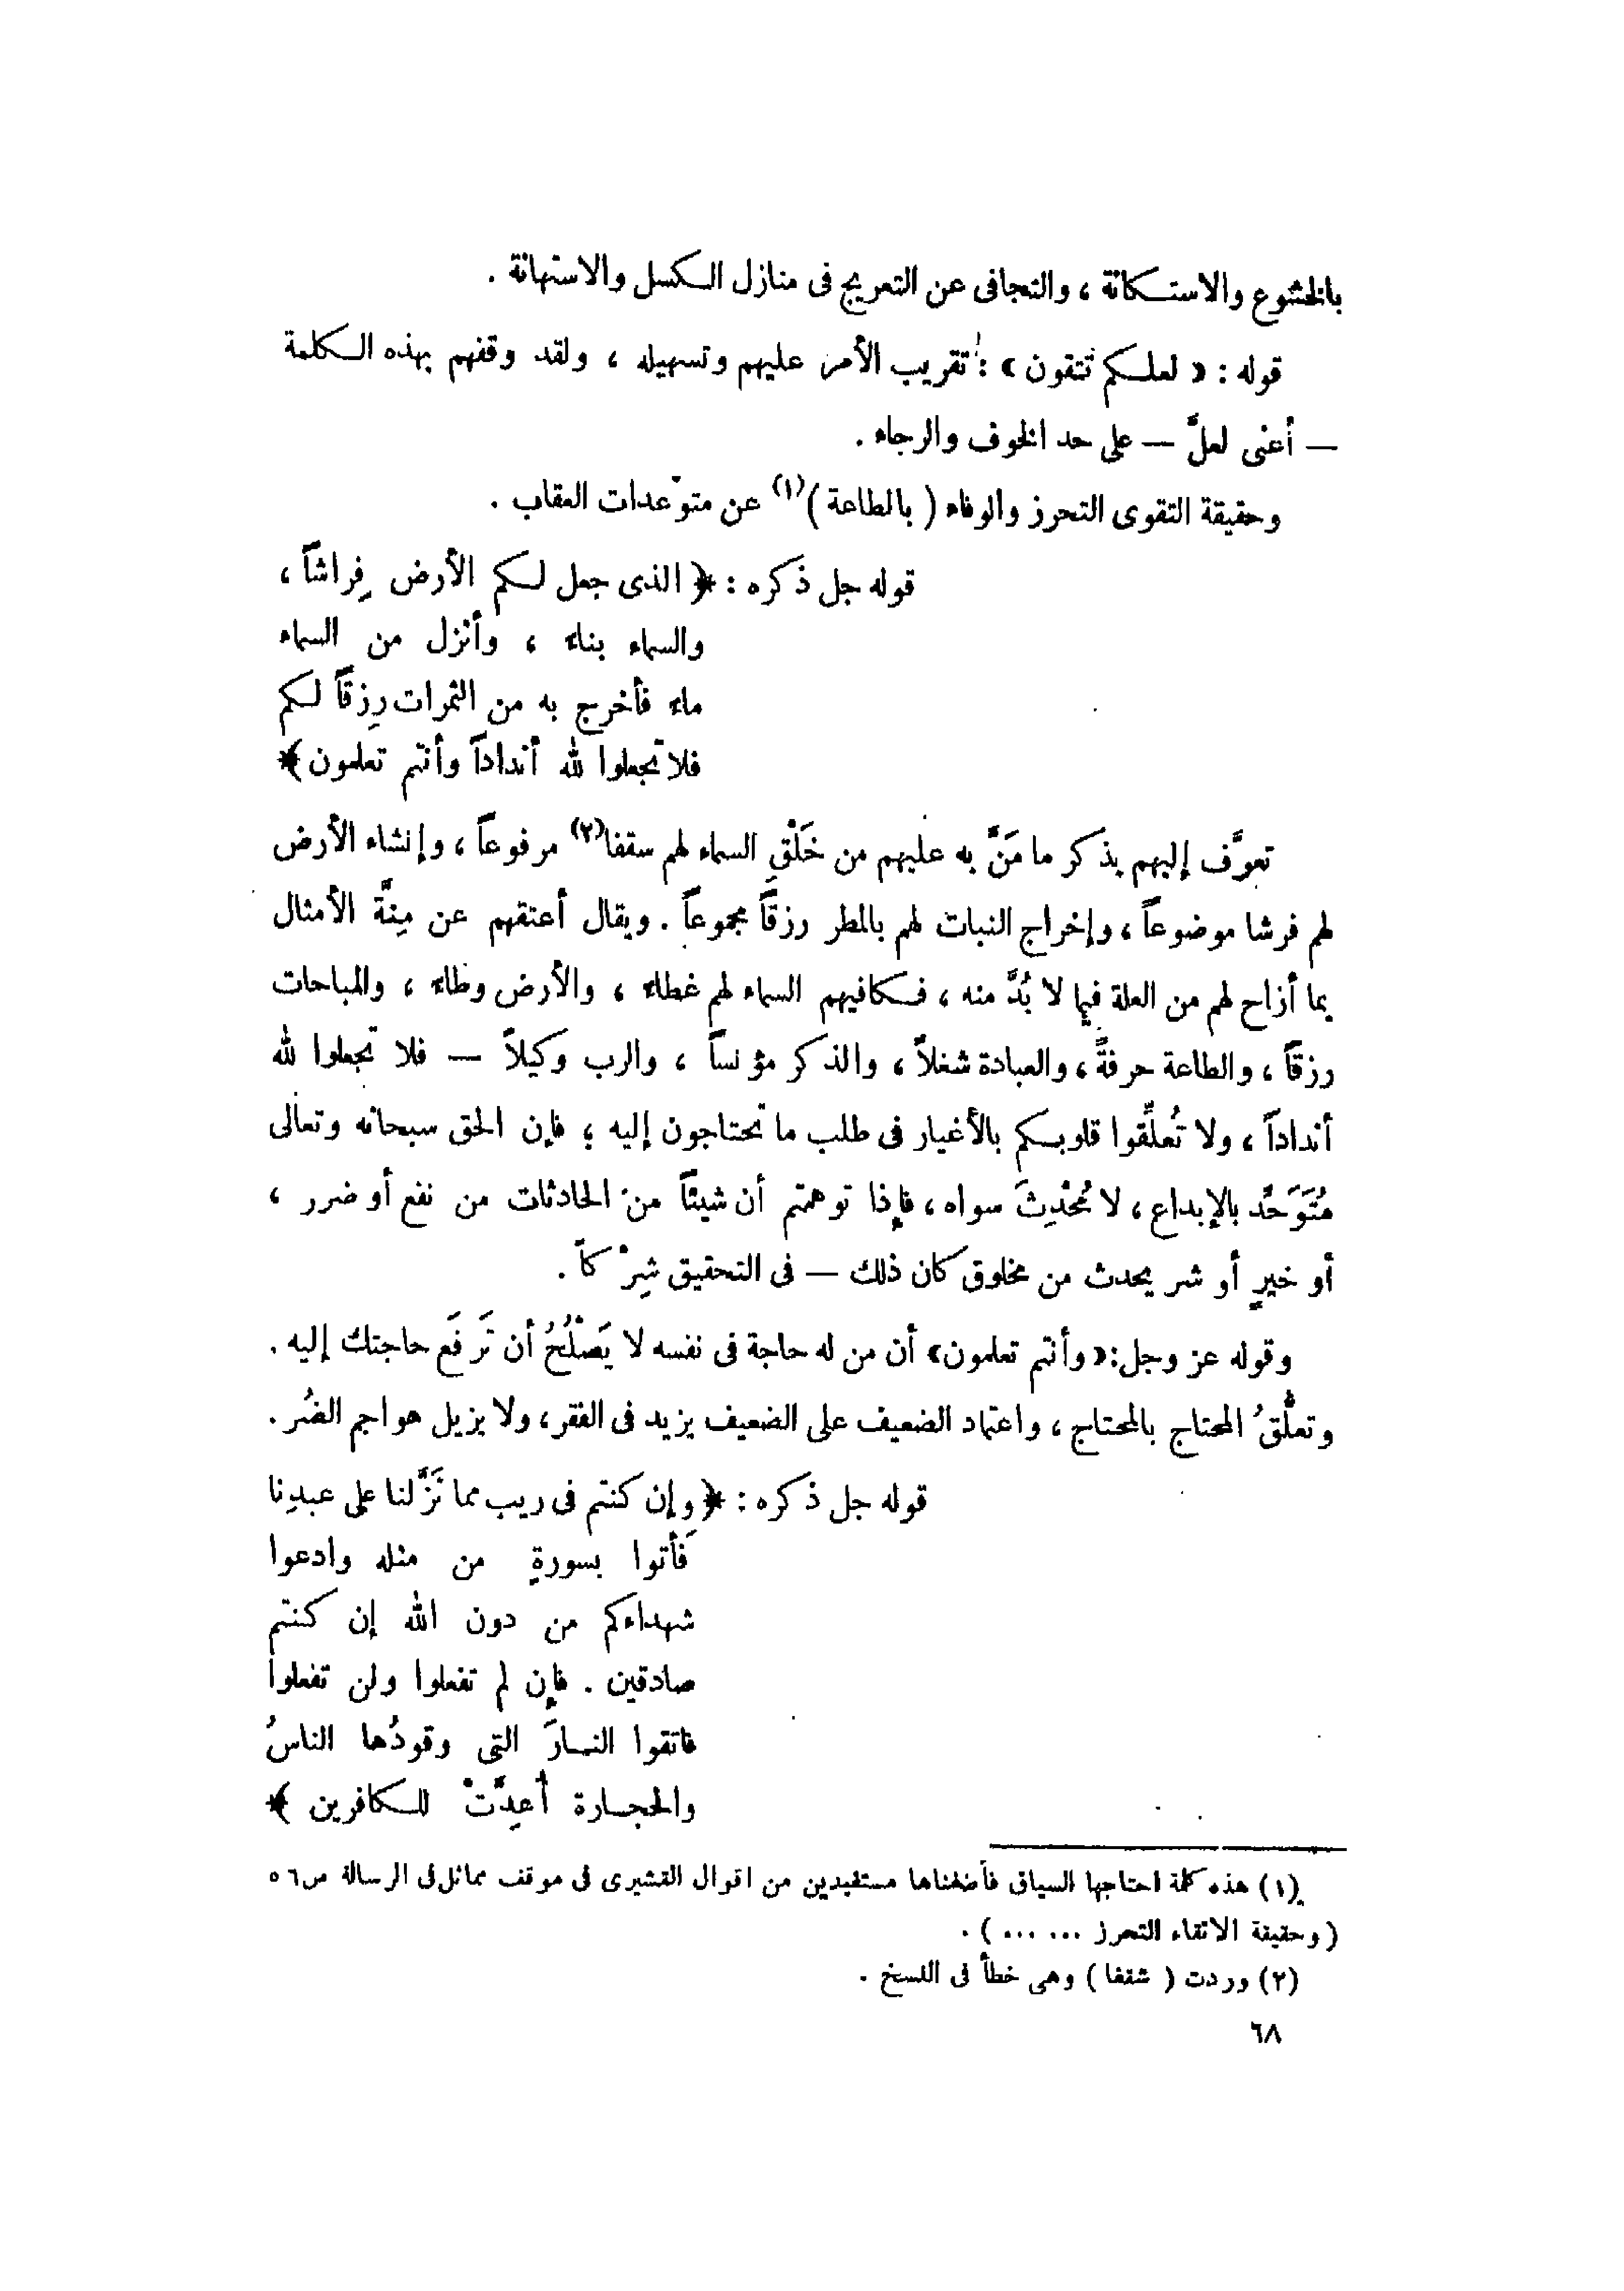 بالخشوع والاستكانة ، والتجافى عن التعريج فى منازل الكسل والاستهانة .
قوله : « لعلكم تتقون » : تقريب الأمر عليهم وتسهيله ، ولقد وقفهم بهذه الكلمة
— أعنى لعلَّ — على حد الخوف والرجاء .
وحقيقة التقوى التحرز والوفاء ( بالطاعة )(١) عن متوعدات العقاب .
قوله جل ذكره : ﴿ الذى جعل لكم الأرض فِراشاً ،
والسماء بناء ، وأنزل من السماء
ماء فأخرج به من الثمرات رِزقاً لكم
فلا تجعلوا لله أنداداً وأنتم تعلمون﴾
تعرَّف إليهم بذكر ما مَنَّ به عليهم من خَلْقِ السماء لهم سقفا(٢) مرفوعاً ، وإنشاء الأرض
لهم فرشا موضوعاً ، وإخراج النبات لهم بالمطر رزقاً مجموعاً . ويقال أعتقهم عن مِنَّة الأمثال
بما أزاح لهم من العلة فيما لا بُدَّ منه ، فكافيهم السماء لهم غطاء ، والأرض وطاء ، والمباحات
رزقاً ، والطاعة حرفةً ، والعبادة شغلاً ، والذكر مؤنساً ، والرب وكيلاً — فلا تجعلوا لله
أنداداً ، ولا تُعلِّقوا قلوبكم بالأغيار فى طلب ما تحتاجون إليه ؛ فإن الحق سبحانه وتعالى
مُتَوَحِّد بالإبداع ، لا مُحْدِثَ سواه ، فإذا توهمتم أن شيئاً من الحادثات من نفع أو ضرر ،
أو خيرٍ أو شر يحدث من مخلوق كان ذلك — فى التحقيق شِرْكاً .
وقوله عز وجل: « وأنتم تعلمون» أن من له حاجة فى نفسه لا يَصْلُحُ أن تَرفَع حاجتك إليه .
وتعلُّقُ المحتاج بالمحتاج ، واعتماد الضعيف على الضعيف يزيد فى الفقر ، ولا يزيل هواجم الضُر .
قوله جل ذكره : ﴿ وإن كنتم فى ريب مما نَزَّلنا على عبدِنا
فَأتوا بسورةٍ من مثله وادعوا
شهداءكم من دون الله إن كنتم
صادقين . فإن لم تفعلوا ولن تفعلوا
فاتقوا النارَ التى وقودُها الناسُ
والحجارة أُعِدَّتْ للكافرين ﴾
(١) هذه كلمة احتاجها السياق فأضفناها مستفيدين من اقوال القشيرى فى موقف مماثل فى الرسالة ص٥٦
( وحقيقة الاتقاء التحرز ... ... ) .
(٢) وردت ( شقفا ) وهى خطأ فى النسخ .
٦٨